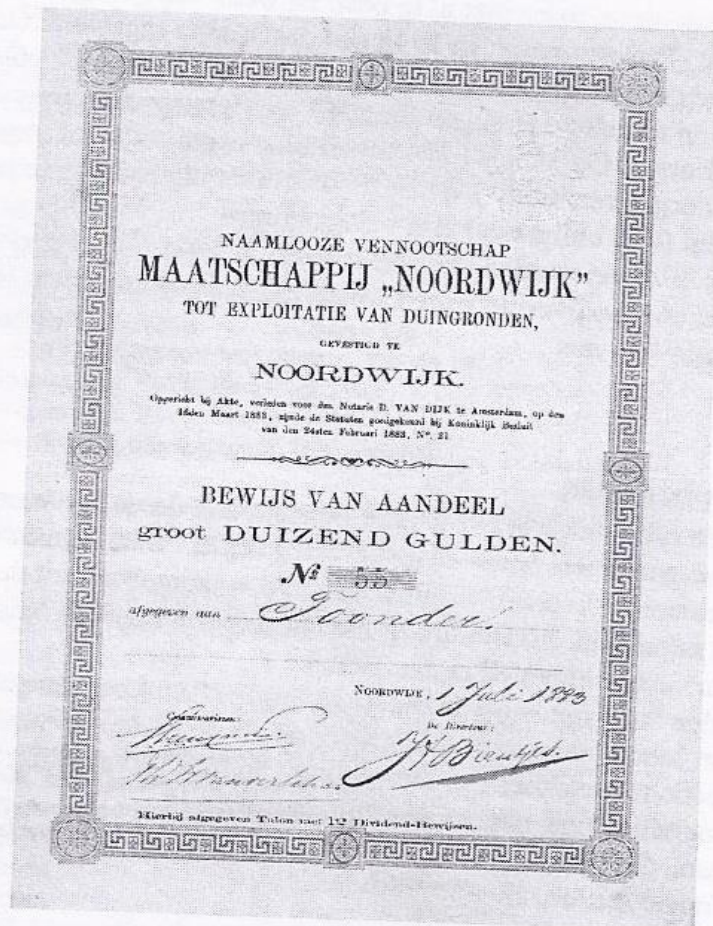 NAAMLOOZE VENNOOTSCHAP
MAATSCHAPPIJ „NOORDWIJK”
TOT EXPLOITATIE VAN DUINGRONDEN,
GEVESTIGD TE
NOORDWIJK.
Opgericht bij Akte, verleden voor den Notaris D. VAN DIJK te Amsterdam, op den
16den Maart 1883, zijnde de Statuten goedgekeurd bij Koninklijk Besluit
van den 24sten Februari 1883, No. 21
BEWIJS VAN AANDEEL
groot DUIZEND GULDEN.
No 55
afgegeven aan Toonder.
NOORDWIJK, 1 Juli 1893
Commissarissen:
De Directeur:
Hierbij afgegeven Talon met Dividend-Bewijzen.